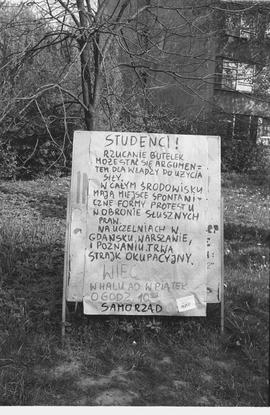 STUDENCI!
RZUCANIE BUTELEK
MOŻE STAĆ SIĘ ARGUMEN=
TEM DLA WŁADZY DO UŻYCIA
SIŁY.
W CAŁYM ŚRODOWISKU
MAJĄ MIEJSCE SPONTANI
CZNE FORMY PROTESTU
W OBRONIE SŁUSZNYCH
PRAW.
NA UCZELNIACH W
GDAŃSKU, WARSZAWIE,
I POZNANIU, TRWA
STRAJK OKUPACYJNY.
WIEC
W HALU AD W PIĄTEK
O GODZ. 10
SAMORZĄD